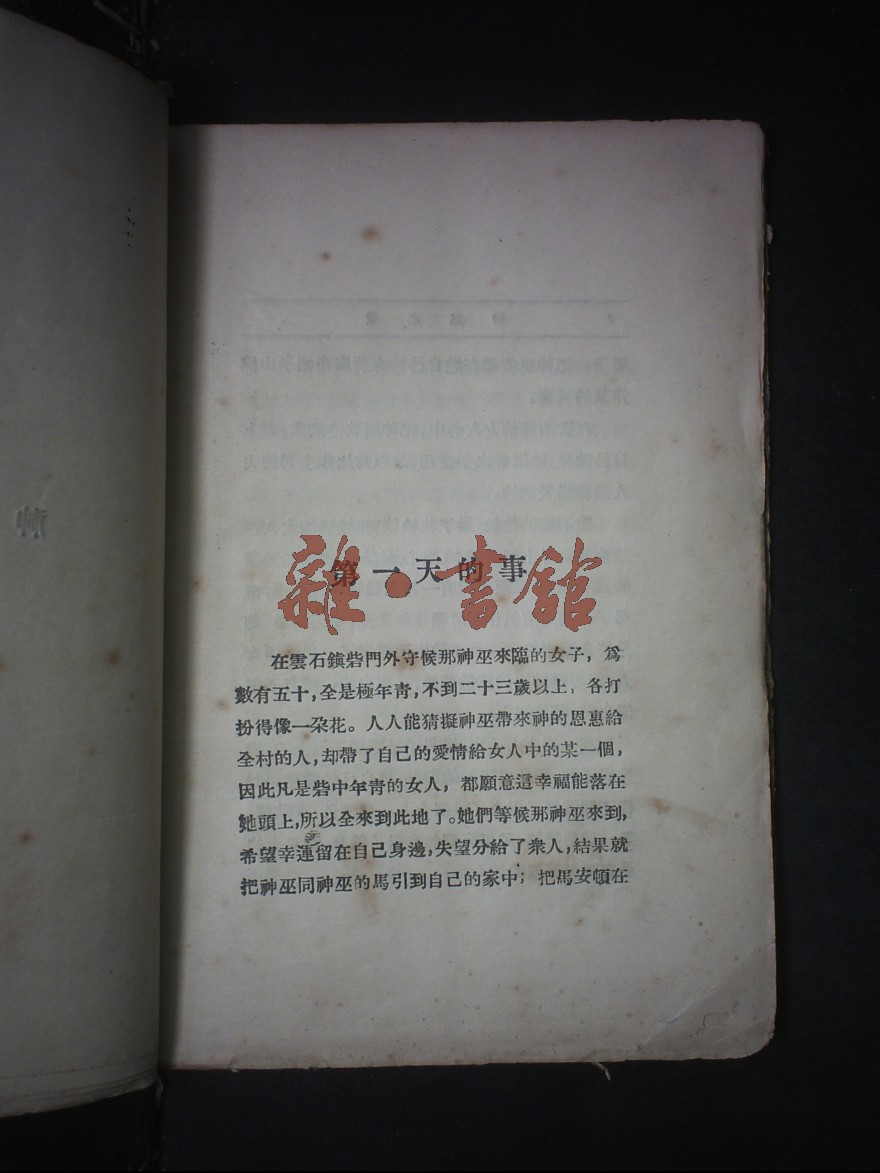 第一天的事
雜·書館
在雲石鎮砦門外守候那神巫來臨的女子，為
數有五十，全是極年靑，不到二十三歲以上，各打
扮得像一朵花。人人能猜擬神巫帶來神的恩惠給
全村的人，却帶了自己的愛情給女人中的某一個，
因此凡是砦中年靑的女人，都願意這幸福能落在
她頭上，所以全來到此地了。她們等候那神巫來到，
希望幸運留在自己身邊，失望分給了衆人，結果就
把神巫同神巫的馬引到自己的家中；把馬安頓在